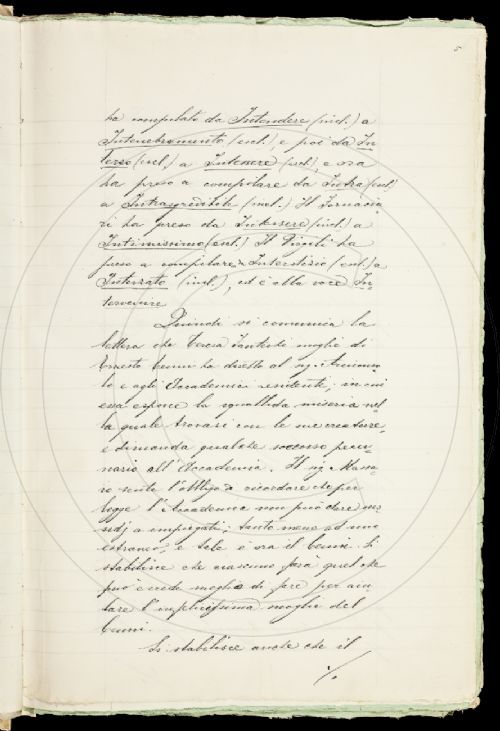 5
ha compilato da Intendere (incl.) a
Intenebramento (escl.), e poi da In-
terso (escl.) a Intessere (incl.), e ora
ha preso a compilare da Intra (incl.)
a Intrasgredibile (incl.) Il Fornacia-
ri ha preso da Intessere (incl.) a
Intimissimo (escl.) Il Rigoli ha
preso a compilare Interstizio (escl.) a
Interrato (incl.), ed è alla voce In-
tervenire
Quindi si comunica la
lettera che Teresa moglie di
Ernesto Cenni ha diretto al sig. Arciconso-
lo e agli Accademici residenti, in cui
essa espone la squallida miseria nel-
la quale trovasi con le sue creature,
e dimanda qualche soccorso pecu-
niario all'Accademia. Il sig. Massa-
io sente l'obbligo di ricordare che per
legge l'Accademia non può dare sus-
sidj a impiegati; tanto meno ad uno
estraneo; e tale è ora il Cenni. Si
stabilisce che ciascuno farà quel che
può e crede meglio di fare per aiu-
tare l'infelicissima moglie del
Cenni.
Si stabilisce anche che il
./.